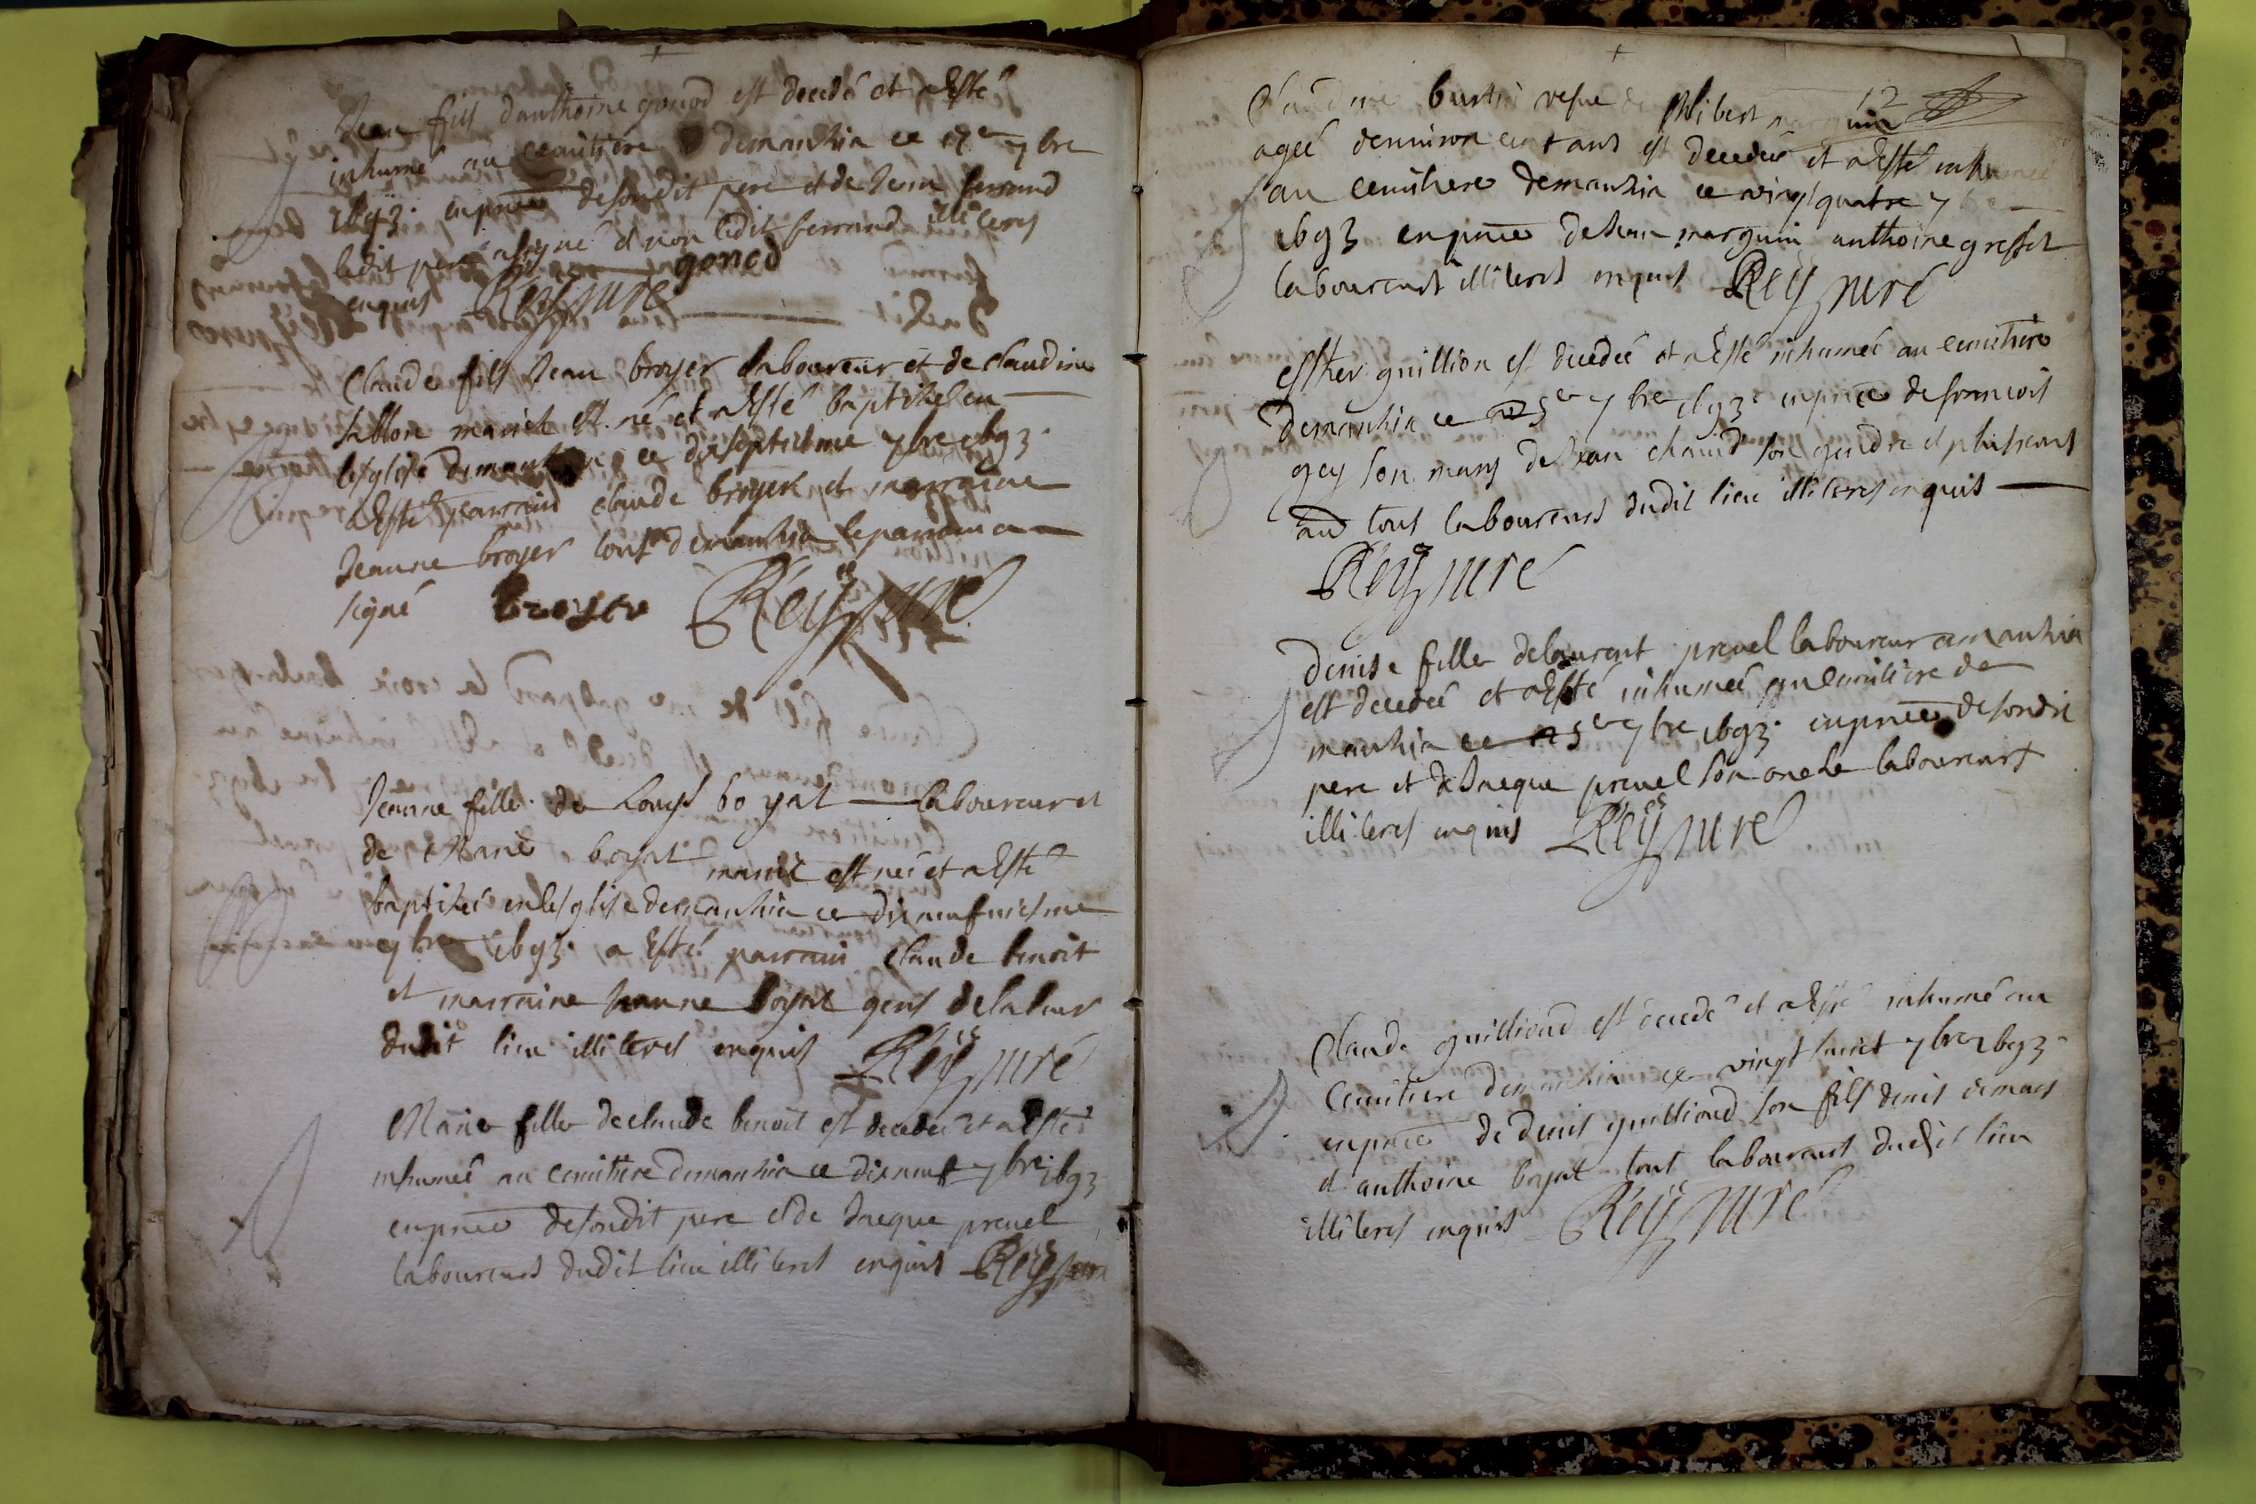 Jean fils danthoine gonod est decedé et a Esté
inhumé au cemitiere demanhia ce 17e 7bre
1693. en pnce desondit pere et de Jean ferrand
ledit pere a signé et non ledit ferrand illiteres
enquis Reÿ curé gonod
Claude fils Jean broyer laboureur et de claudine
sablon mariés est né et a Esté baptisé en
lesglise demanhia ce dixseptiesme 7bre 1693.
a Esté parrain claude broyer et marraine
Jeanne broyer tous demanhia le parrain a
signé broyer Reÿ curé
Jeanne fille de Louys boyat laboureur et
de Marie boyat mariés est née et a Esté
baptisée en lesglise demanhia ce dixneufviesme
7bre 1693. a Esté parrain claude benoit
et marraine Jeanne boyat gens de labeur
dudit lieu illiteres enquis Reÿ curé
Marie fille declaude benoit est decedée et a Esté
inhumée au cemitiere demanhia ce dixneuf 7bre 1693
en pnce desondit pere et de Jaque prevel
laboureurs dudit lieu illiteres enquis Reÿ curé
12
Claudine vefve de philibert marguin
agée denviron cent ans est decedée et a Esté inhumée
au cemithere demanhia ce vingt quatre 7bre
1693 en pnce deJean marguin anthoine greffet
laboureurs illiteres enquis Reÿ curé
esther guillion est decedée et a Esté inhumée au cemithere
demanhia ce 25e 7bre 1693. en pnce de francois
gey son mary deJean chanel son gendre et plusieurs
au tous laboureurs dudit lieu illiteres enquis
Reÿ curé
denise fille delaurent prevel laboureur a manhia
est decedée et a Esté inhumée au cemitiere de
manhia ce 25e 7bre 1693. en pnce desondit
pere et deJaque prevel son oncle laboureurs
illiteres enquis Reÿ curé
Claude guilliond est decedé et a Esté inhumé au
cemitiere demanhia ce vingt huict 7bre 1693.
en pnce de denis guilliond son fils denis
et anthoine boyat tous laboureurs dudit lieu
illiteres enquis Reÿ curé